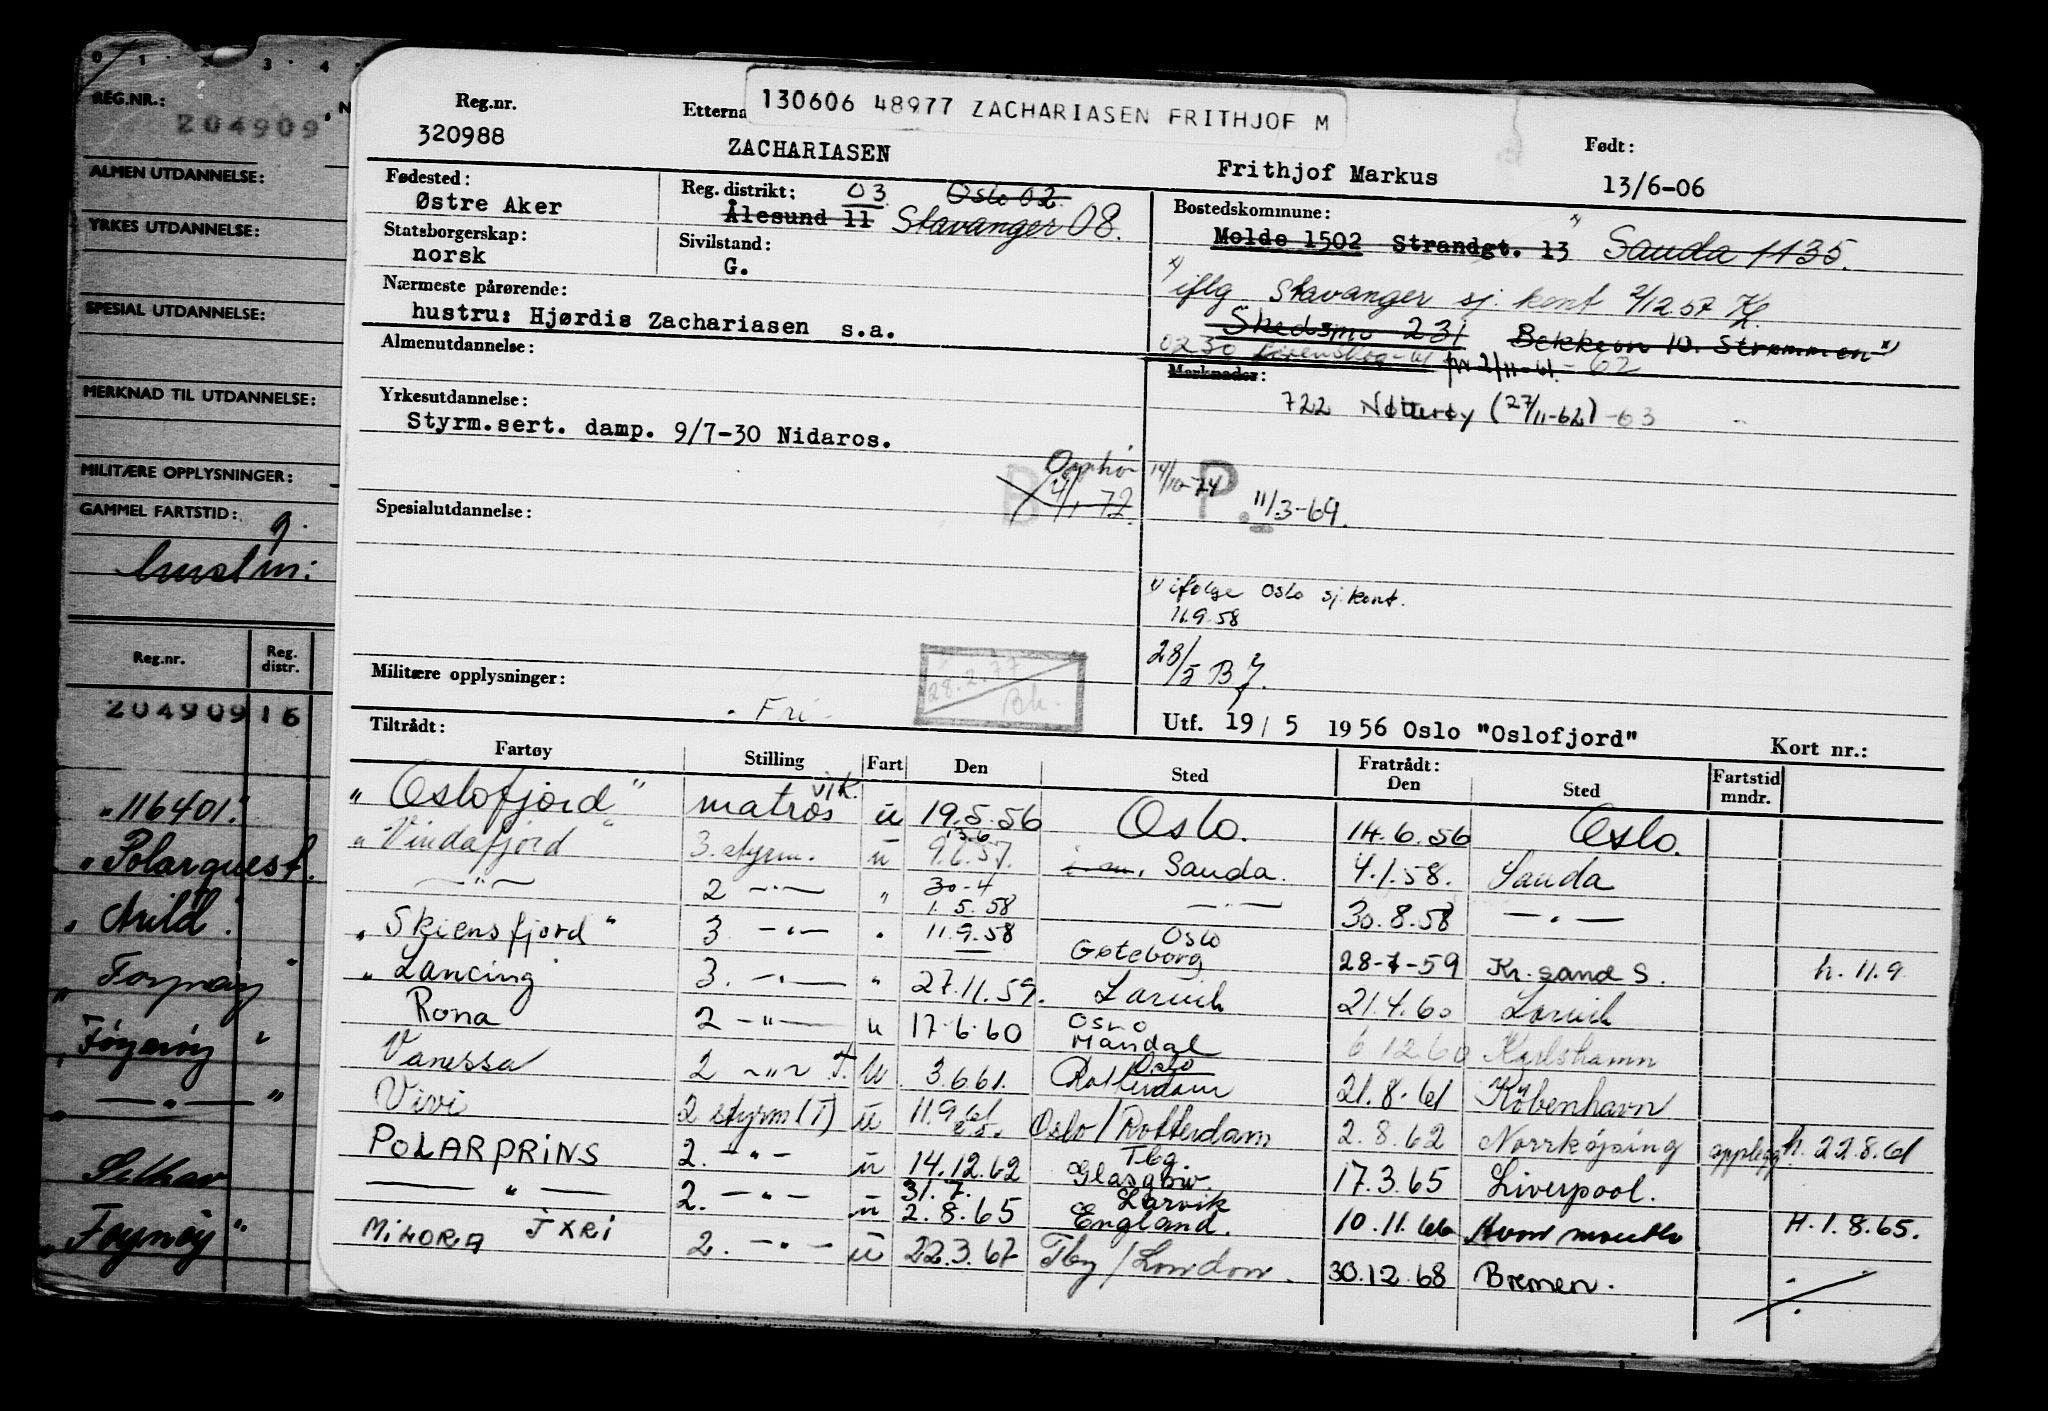 0 1 2 3 4
REG.NR.:
204909
ALMEN UTDANNELSE:
YRKES UTDANNELSE:
SPESIAL UTDANNELSE:
MERKNAD TIL UTDANNELSE:
MILITÆRE OPPLYSNINGER:
GAMMEL FARTSTID: 9.
hustru:
Reg.nr. Reg. distr.
204909 16
"116401."
"Polarquest.
"Arild".
"Føynøy"
— " — "
Selhav
"Føynøy"
130606 48977 ZACHARIASEN FRITHJOF M
Reg.nr. Etterna Født:
320988 ZACHARIASEN Frithjof Markus 13/6-06
Fødested: Reg. distrikt: 03 Oslo 02. Bostedskommune:
Østre Aker Ålesund 11 Stavanger 08. Molde 1502 Strandgt. 13 Sauda 1135.
Statsborgerskap: Sivilstand:
norsk G.
x) iflg Stavanger sj. kont 2/12.57
Nærmeste pårørende:
hustru: Hjørdis Zachariasen s.a.
Skedsmo 231 Bekkevn 10. Strømmen x)
0230 Lørenskog-61 2/11-61-62
Almenutdannelse: Merknader:
722 Nøtterøy (27/11-62) -63
Yrkesutdannelse:
Styrm.sert. damp. 9/7-30 Nidaros.
Opphør 14/10-74 P.
B 4/1-72. 11/3-69.
Spesialutdannelse:
x) ifølge Oslo sj. kont.
11.9.58
28/5 B
Militære opplysninger: Fri 28.2.77 Bh.
Utf. 19/ 5 1956 Oslo "Oslofjord"
Tiltrådt: Kort nr.:
Fartøy Stilling Fart Den Sted Fratrådt: Den Sted Fartstid mndr.
"Oslofjord" vik. matros u 19.5.56 Oslo. 14.6.56 Oslo.
"Vindafjord" 3. styrm. u 13.6 9.6.57. Sauda. 4.1.58. Sauda
— " — 2 — " — " 30-4 1.5.58 — " — 30.8.58 — " —
"Skiensfjord" 3 — " — " 11.9.58 Oslo Gøteborg 28-7-59 Kr. sand S. h. 11.9
"Lancing" 3. — " — " 27.11.59. Larvik 21.4.60 Larvik
Rona 2 — " — u 17.6.60 Oslo Mandal 6 12.60 Karlshamn
Vanessa 2 — " — T. u. 3.6.61. Oslo Rotterdam 21.8.61 København
Vivi 2 styrm (T) u 11.9.61 Oslo / Rotterdam 2.8.62 Norrkøping opplegg h. 22.8.61
POLARPRINS 2. — " — u 14.12.62 Tbg. Glasgow. 17.3.65 Liverpool.
— " — 2. — " — u 31.7. 2.8.65 Larvik England. 10.11.66 Avonmouth H. 1.8.65.
MINORA JXRI 2. — " — u 22.3.67 Tbg / London. 30.12.68 Bremen.